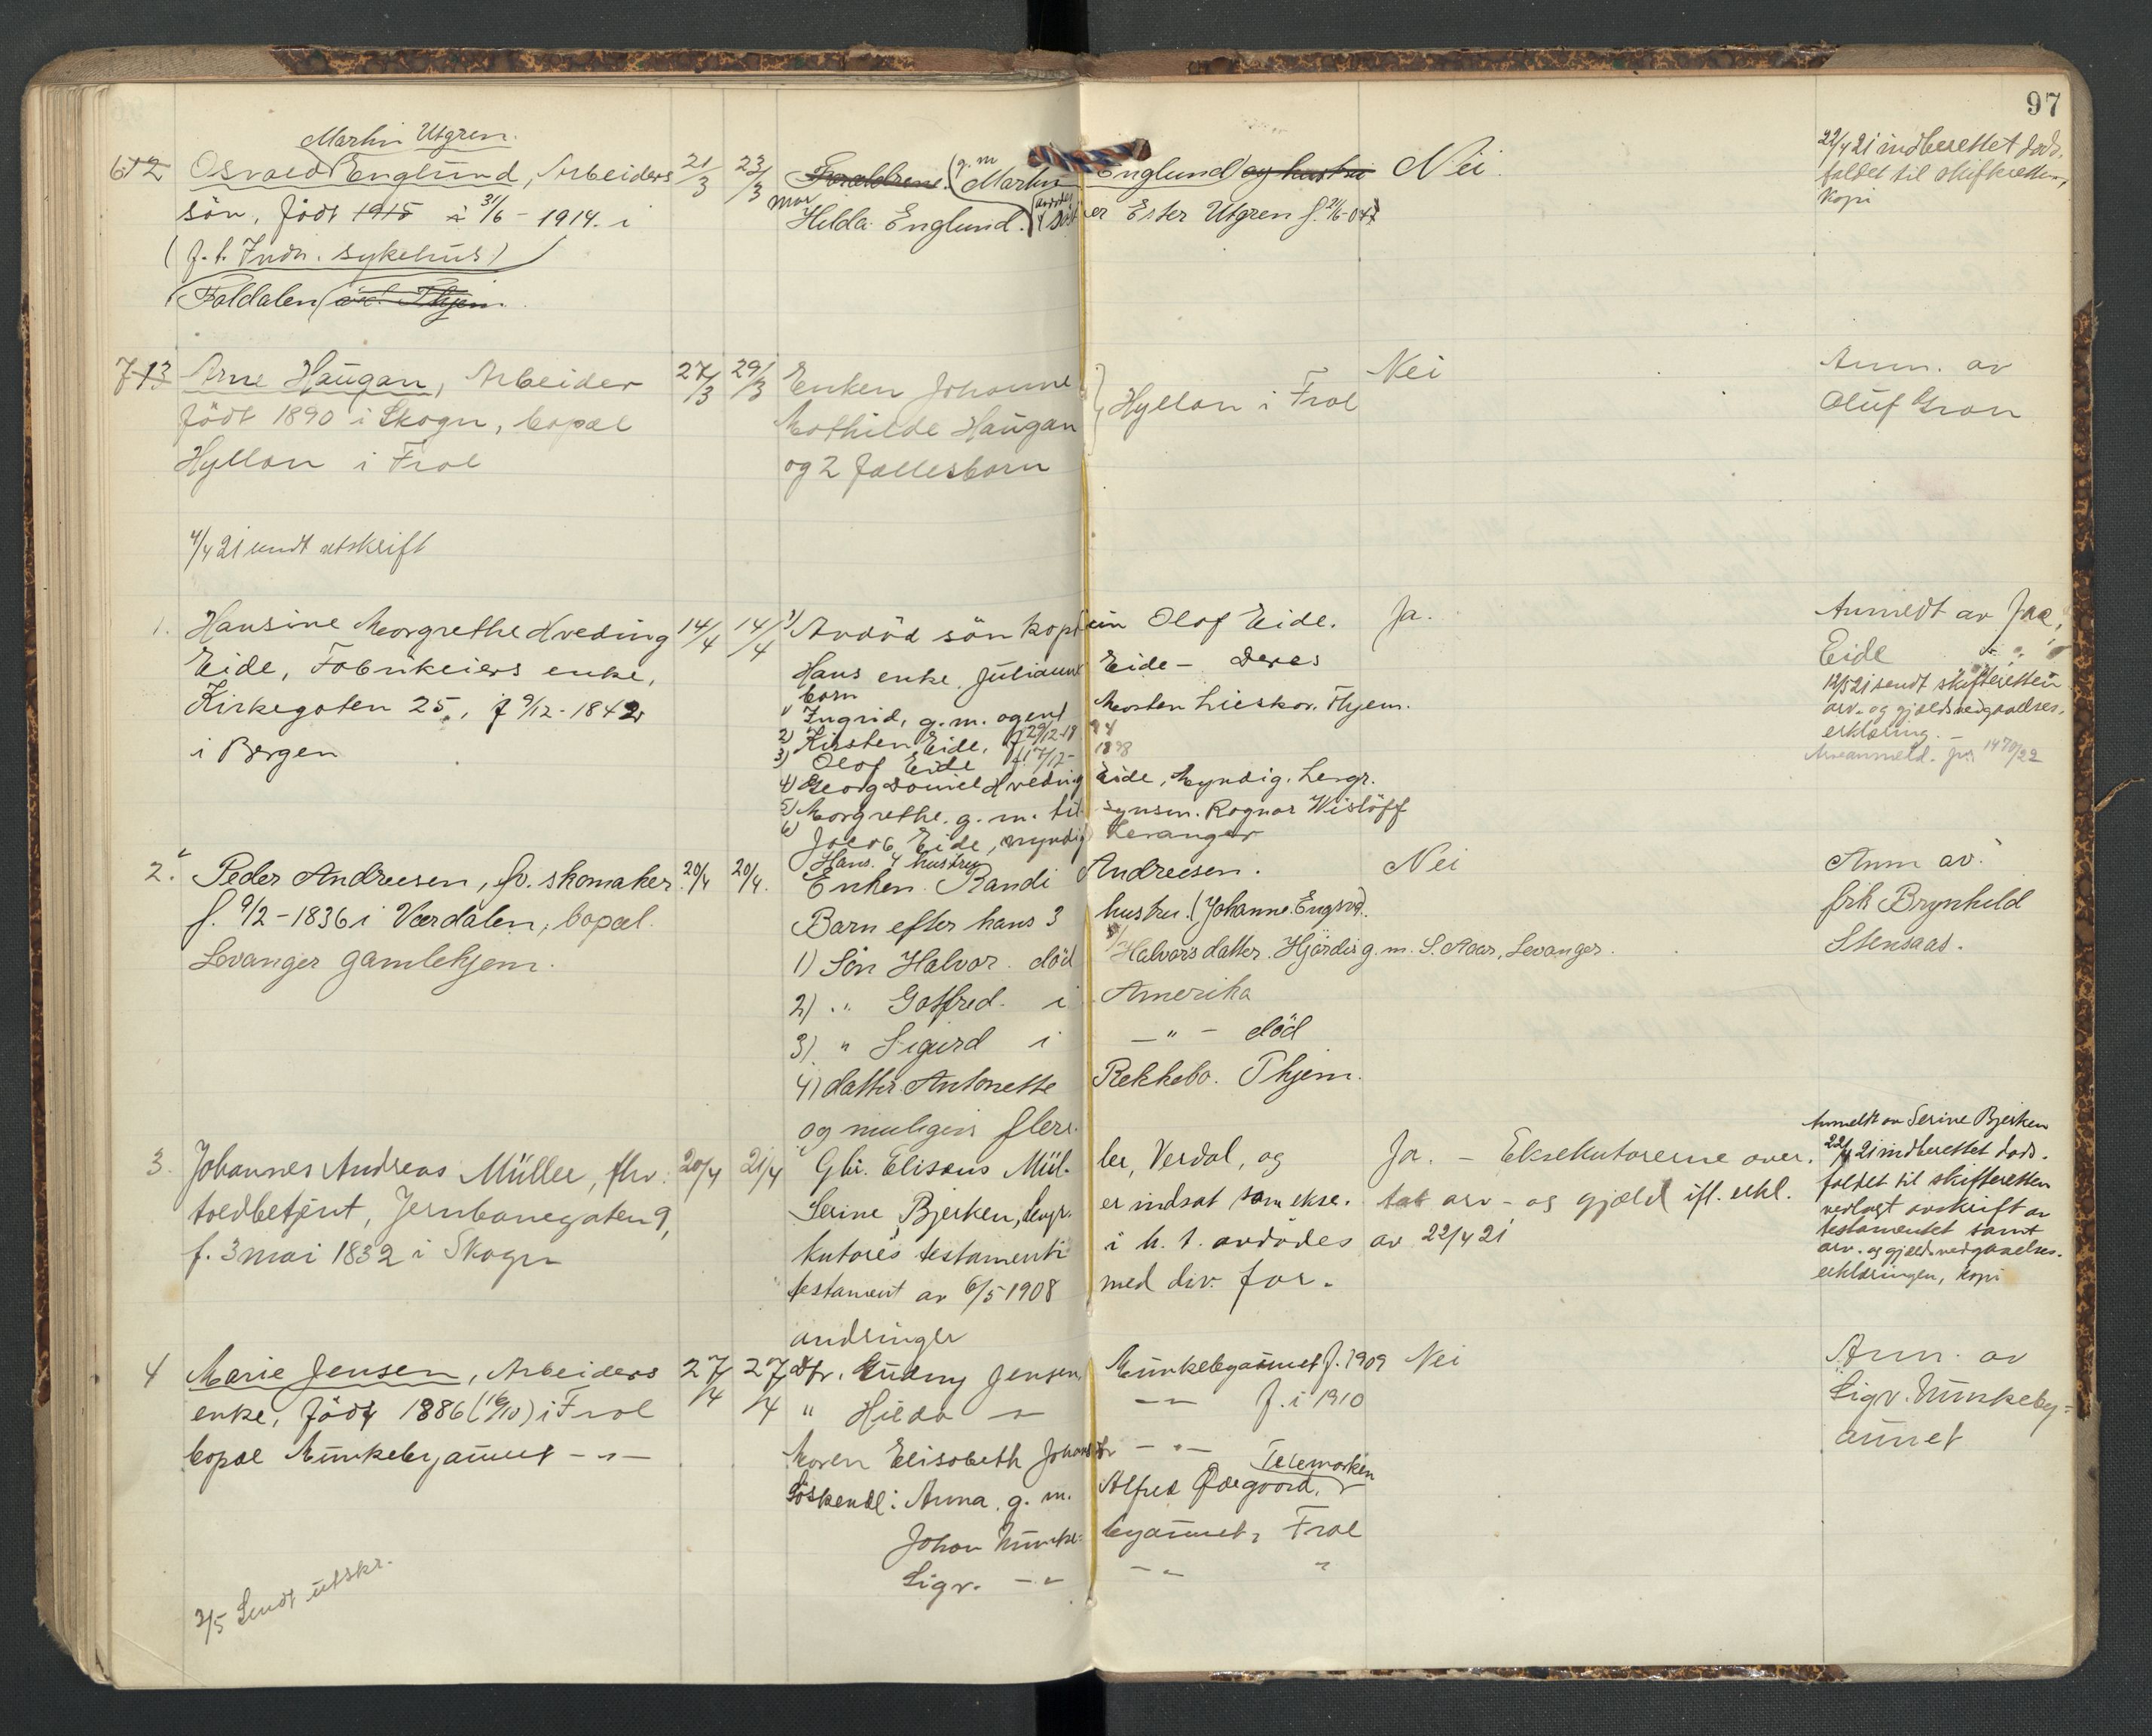 97
Martin Utgren.
6 12 Osvald Englund, Arbeiders 21/3 23/3 Forældrene (g. m Martin Englund) og hustru Nei.
sön, födt 1915 31/6 - 1914. i mor Hilda Englund. Ester Utgren f. 21/6-04
(f. t. Indh. sykehus)
Foldalen
22/4 21 indberettet döds-
faldet til skifteretten,
kopi
7 13 Arne Haugan, Arbeider 27/3 29/3 Enken Johanne Nei Anm. av
födt 1890 i Skogn, bopæl Mathilde Haugan } Hyllan i Frol Oluf Gran
Hyllan i Frol og 2 fællesbarn
4/4 21 sendt utskrift
1. Hansine Margrethe Hveding 14/4 14/4 1/ Avdöd sön kaptein Olaf Eide. Ja. Anmeldt av
Eide, Fabrikeiers enke, Hans enke Julianne Eide - Deres Eide
barn
Kirkegaten 25, f 9/12-1842 1) Ingrid, g. m. agent Morten Lieskar. Thjem.
i Bergen 2) Kirsten Eide, f 29/12-18 94
3) Olaf Eide f. 17/12- 1898
4) Georg Daniel Hveding Eide, Myndig. Levgr.
5) Margrethe. g. m. tilsynsm. Ragnar Wislöff
6) Jacob Eide, myndig Levanger
12/5 21 sendt skifteretten
arv- og gjældsvedgaaelses-
erklæring. -
Arveanmeld. 1470/22
Hans 4 hustru
2. Peder Andreesen, fv. skomaker 20/4 20/4. Enken Randi Andreesen. Nei Anm av
f. 9/2-1836 i Værdalen, bopæl Barn efter hans 3 hustru (Johanne Engsvd. frk Brynhild
Levanger gamlehjem. 1) Sön Halvor. död Halvors datter. Hjördis g. m. S. Aaar, Levanger. Stensaas.
2) " Gotfred. i Amerika
3) " Sigurd i - " - död
4) datter Antonette Rekkebo. Thjem.
og muligens flere.
3. Johannes Andreas Müller, fhv. 20/4 21/4 Gbr. Eliseus Müller, Verdal, og Ja. - Eksekutorerne over-
toldbetjent, Jernbanegaten 9, Serine Bjerken, Levgr. er indsat som ekse- tat arv- og gjæld ifl. erkl.
f. 3 mai 1832 i Skogn kutores testamenti i h. t. avdödes av 22/4 21
testament av 6/5 1908 med div. for-
andringer
Anmeldt av Serine Bjerken
22/4 21 indberettet döds-
faldet til skifteretten
vedlagt avskrift av
testamentet samt
arv- og gjældsvedgaaelses-
erklæringen, kopi
4 Marie Jensen, Arbeiders 27/4 27/4 Dtr. Gudny Jensen, Munkebyaunet f. 1909 Nei Anm. av
enke, födt 1886 (16/10) i Frol " Hilda - " - - " - f. i 1910 Sigv. Munkeby-
bopæl Munkebyaunet - " - Moren Elisabeth - " - aunet
Söskende: Anna g. m. Alfred Ødegaard, Telemarken
Johan Munkebyaunet, Frol
Sigv. - " - - " - "
3/5 Sendt utskr.